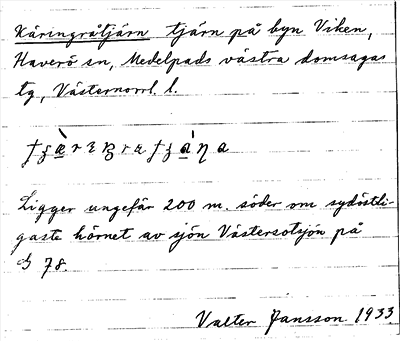 Käringråtjärn tjärn på byn Viken,
Haverö sn, Medelpads västra domsagas
tg, Västernorrl. l.
Ligger ungefär 200 m. söder om sydöstli-
gaste hörnet av sjön Västersotsjön på
78.
Valter Jansson 1933